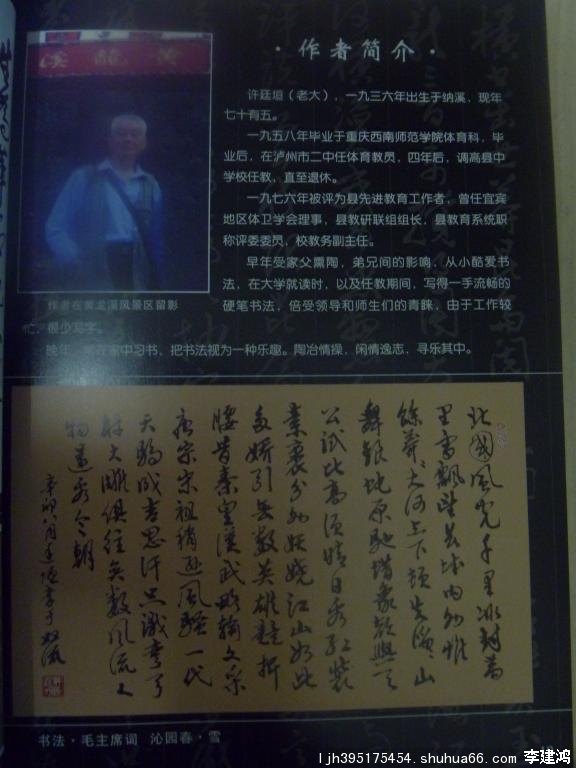 ·作者简介·
溪龍黄
许廷垣（老大），一九三六年出生于纳溪，现年
七十有五。
一九五八年毕业于重庆西南师范学院体育科，毕
业后，在泸州市二中任体育教员，四年后，调高县中
学校任教，直至退休。
一九七六年被评为县先进教育工作者，曾任宜宾
地区体卫学会理事，县教研联组组长，县教育系统职
称评委委员，校教务副主任。
早年受家父熏陶，弟兄间的影响，从小酷爱书
法，在大学就读时，以及任教期间，写得一手流畅的
硬笔书法，倍受领导和师生们的青睐，由于工作较
忙，很少写字。
晚年，常在家中习书，把书法视为一种乐趣。陶冶情操，闲情逸志，寻乐其中。
作者在黄龙溪风景区留影
北國風光千里冰封萬
里雪飄望長城内外惟
餘莽莽大河上下頓失滔滔山
舞銀蛇原馳蠟象欲與天
公試比高須晴日看紅裝
素裹分外妖嬈江山如此
多嬌引無數英雄競折
腰昔秦皇漢武略輸文采
唐宗宋祖稍遜風騷一代
天驕成吉思汗只識彎弓
射大雕俱往矣數風流人
物還看今朝
辛卯八月廷垣書于双流
书法·毛主席词 沁园春·雪
ljh395175454.shuhua66.com 李建鸿